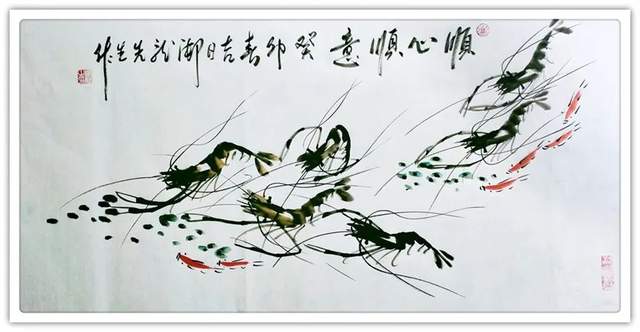 順心順意 癸卯春吉日湖龙先生作